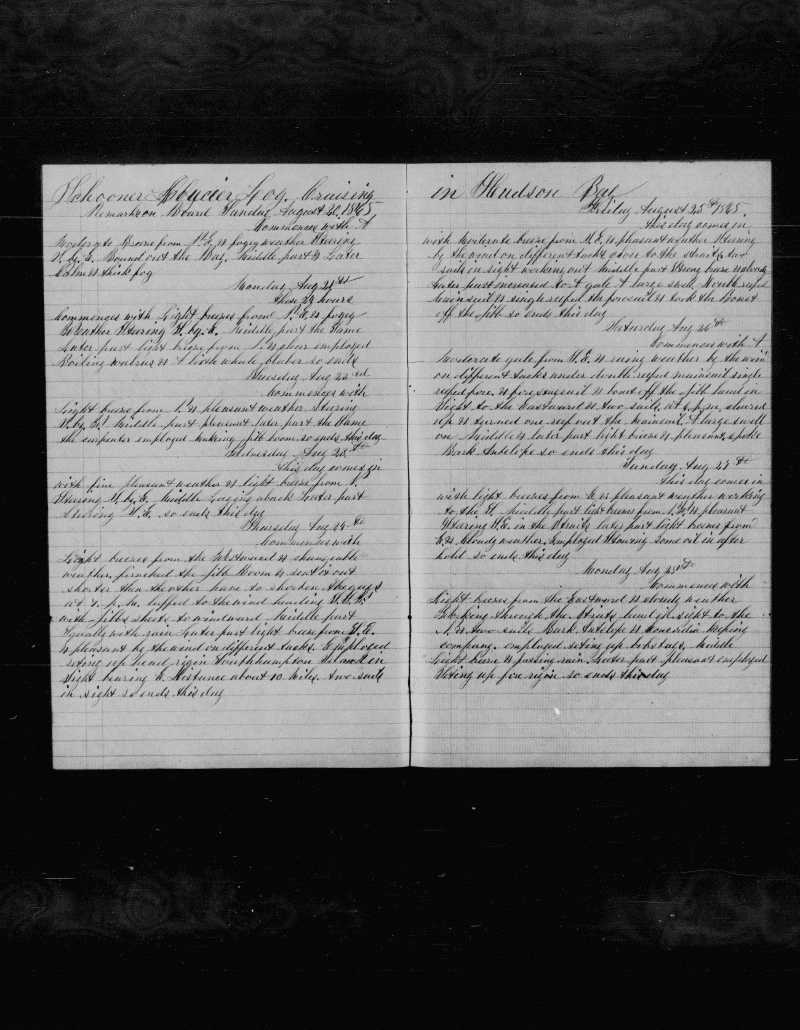 Schooner Glacier Log Cruising
Remarks on Board Sunday August 20 1865
Commences with A
Moderate Breeze from N.E. & fogey weather Stearing
S. by E. Bound out the Bay. Middle part & Later
Calm & thick fog
Monday Aug 21st
These 24 hours
Commences with Light breezes from S.E. & fogey
Weather Stearing S. by E. Middle part the Same
Later part light breeze from S. & clear employed
Boiling walrus & 1 whale bluber so ends
Tuesday Aug 22nd
Commences with
Light breeze from S. & pleasant weather Stearing
S. by E. Middle part pleasant later part the Same
the carpenter employed making jibb boom so ends this day
Wednesday Aug 23
this day comes in
with fine pleasant weather & light breeze from S.
Stearing S. by E. Middle Laying aback Later part
Stearing S.E. so ends this day
Thursday Aug 24th
Commences with
Light breezes from the Westward & changeable
weather, finished the jibb Boom & sent it out
shorter then the other have to shorten the guys
at 7. p. m. luffed to the wind heading
with jibb sheets to windward. Middle part
Squally with rain Later part light breeze from S.E.
& pleasant by the wind on different tacks. Employed
seting up head rigin Southhampton Island in
Sight bearing W. Distance about 10 Miles, two sails
in sight so ends this day
in Hudson Bay
Friday August 25th 1865
this day comes in
with Moderate breeze from N.E. & pleasant weather Stearing
by the wind on different tacks close to the straits, two
sails in sight working out Middle part Strong breeze & cloudy
Later part increased to A gale & large swell, Double reefed
mainsail & single reefed the foresail & took the Bonet
off the jibb so ends this day
Saturday Aug 26th
Commences with A
Moderate gale from N.E. & weather by the wind
on different tacks under double reefed mainsail single
reefed fore & fore staysail & bonet off the jibb land in
Sight to the Eastward & two sails, at 6, p, m, cleared
up & turned one reef out the Mainsail, A large swell
on Middle & later part light breeze & pleasant, spoke
Bark Antelope so ends this day
Sunday Aug 27th
this day comes in
with light breezes from E. & pleasant weather working
to the E. Middle part light breezes from S.E. & pleasant
Stearing N.E. in the Straits later part light breezes from
E. & cloudy weather, Employed Stowing some oil in after
hold so ends this day
Monday Aug 28th
Commences with
Light breezes from the Eastward & cloudy weather
working through the Straits land in sight to the
S. & two sails Bark Antelope & Concordia keeping
company, employed seting up bobstays, Middle
Light breeze & passing rain, Later part pleasant employed
Seting up fore rigin so ends this day